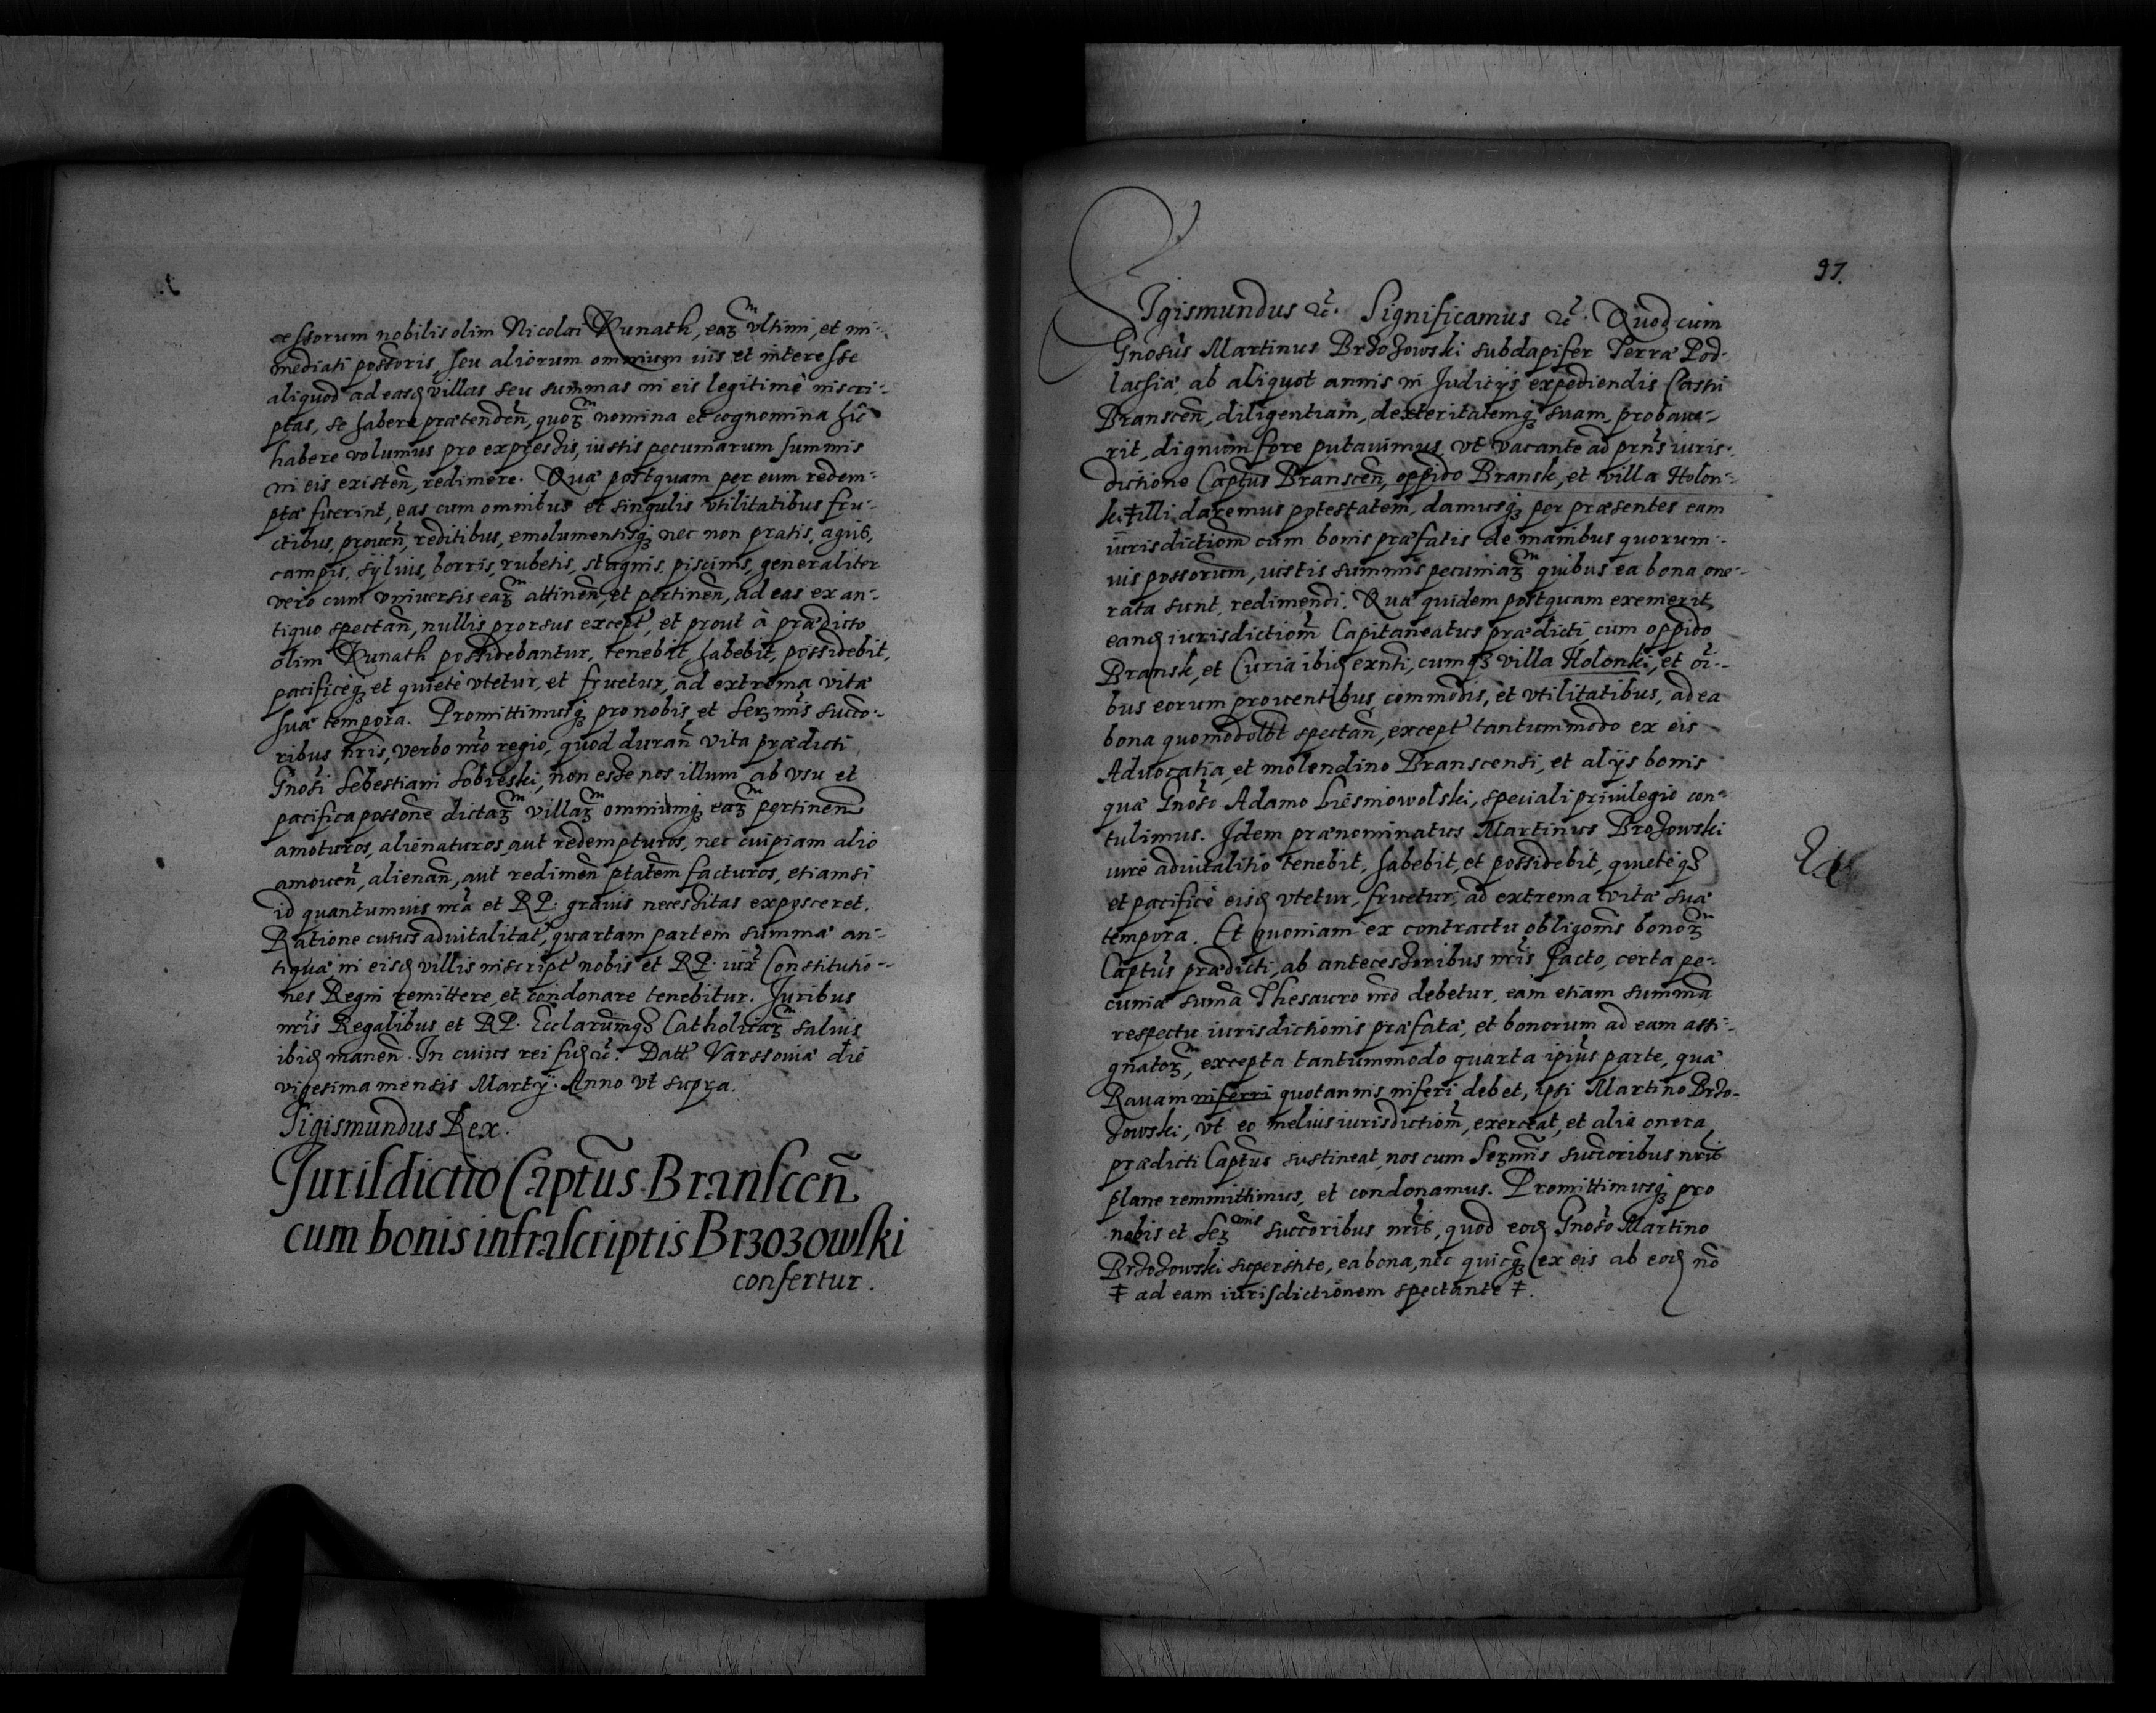 cessorum nobilis olim Nicolai Kunath, earꝫ^m vltimi, et im-
mediati possoris, seu aliorum omnium ius et interesse
aliquod ad easdꝫ villas seu summas in eis legitimè inscri-
ptas, se habere prætendeñ, quorꝫ^m nomina et cognomina hic
habere volumus pro expressis, iustis pecuniarum summis
in eis existeñ, redimere. Quæ postquam per eum redem-
ptæ fuerint, eas cum omnibus et singulis vtilitatibus fru-
ctibus, proueñ, reditibus, emolumentisqꝫ nec non pratis, agris,
campis, syluis, borris, rubetis, stagnis, piscinis, generaliter
vero cum vniuersis earꝫ^m attineñ, et pertineñ, ad eas ex an-
tiquo spectañ, nullis prorsus except, et prout à prædicto
olim Kunath possidebantur, tenebit, habebit, possidebit,
pacificeqꝫ et quietè vtetur, et fruetur, ad extrema vitæ
suæ tempora. Promittimusqꝫ pro nobis, et Serꝫmis succo-
ribus nris, verbo nro regio, quod durañ vita prædicti
Gnosi Sebestiani Sobieski, non esse nos illum ab vsu et
pacifica possone dictarꝫ^m villarꝫ^m omniumqꝫ earꝫ^m pertineñ
amoturos, alienaturos, aut redempturos, nec cuipiam alio
amoueñ, alienañ, aut redimeñ ptatem facturos, etiamsi
id quantumuis nra et RP. grauis necessitas exposceret.
Ratione cuius aduitalitat, quartam partem summæ an-
tiquæ in eisdꝫ villis inscript nobis et RP. iux Constitutio-
nes Regni remittere et condonare tenebitur. Juribus
nris Regalibus et RP. Ecclarumqꝫ Catholicarꝫ^m saluis
ibidꝫ maneñ. In cuius rei fidꝫ etc. Datt Varssouiæ die
vigesima mensis Martij. Anno vt supra.
Sigismundus Rex.
Jurisdictio Captus Branscen̄
cum bonis infrascriptis Brzozowski
confertur.
97.
Sigismundus etc. Significamus etc. Quod cum
Gnosus Martinus Brzozowski subdapifer Terræ Pod-
lachiæ ab aliquot annis in Judicijs expediendis Castri
Branscen̄, diligentiam, dexteritatemqꝫ suam probaue-
rit, dignum fore putauimus, vt vacante ad prns iuris-
dictione Captus Branscen̄, oppido Bransk, et villa Holon-
ki ‡ illi daremus potestatem, damusqꝫ per præsentes eam
iurisdictiom cum bonis præfatis de manibus quorum-
uis possorum, iustis summis pecuniarꝫ^m quibus ea bona one-
rata sunt, redimendi. Quæ quidem postquam exemerit,
eandꝫ iurisdictiom Capitaneatus prædicti, cum oppido
Bransk, et Curia ibidꝫ exnti, cumqꝫ villa Holonki, et oi-
bus eorum prouentibus, commodis, et vtilitatibus, ad ea
bona quomodolbt spectañ, except tantummodo ex eis
Aduocatia, et molendino Branscensi, et alijs bonis
quæ Gnoso Adamo Liesniowolski, speciali priuilegio con-
tulimus. Idem prænominatus Martinus Brozowski
iure aduitalitio tenebit, habebit, et possidebit, quieteqꝫ
et pacificè eisdꝫ vtetur, fruetur, ad extrema vitæ suæ
tempora. Et quoniam ex contractu obligonis bonorꝫ^m
Captus prædicti, ab antecessoribus nris facto, certa pe-
cuniæ suma Thesauro nro debetur, eam etiam summa
respectu iurisdictionis præfatæ, et bonorum ad eam assi-
gnatorꝫ^m, excepta tantummodo quarta ipius parte, quæ
Rauam inferri quotannis inferi debet, ipsi Martino Brzo-
zowski, vt eo melius iurisdictiom, exerceat, et alia onera
prædicti Captus sustineat, nos cum Serꝫmis succoribus nris
plane remmittimus, et condonamus. Promittimusqꝫ pro
nobis et Serꝫ^mis succoribus nris, quod eodꝫ Gnoso Martino
Brzozowski superstite, ea bona, nec quicqꝫ ex eis ab eodꝫ no
‡ ad eam iurisdictionem spectante ‡.